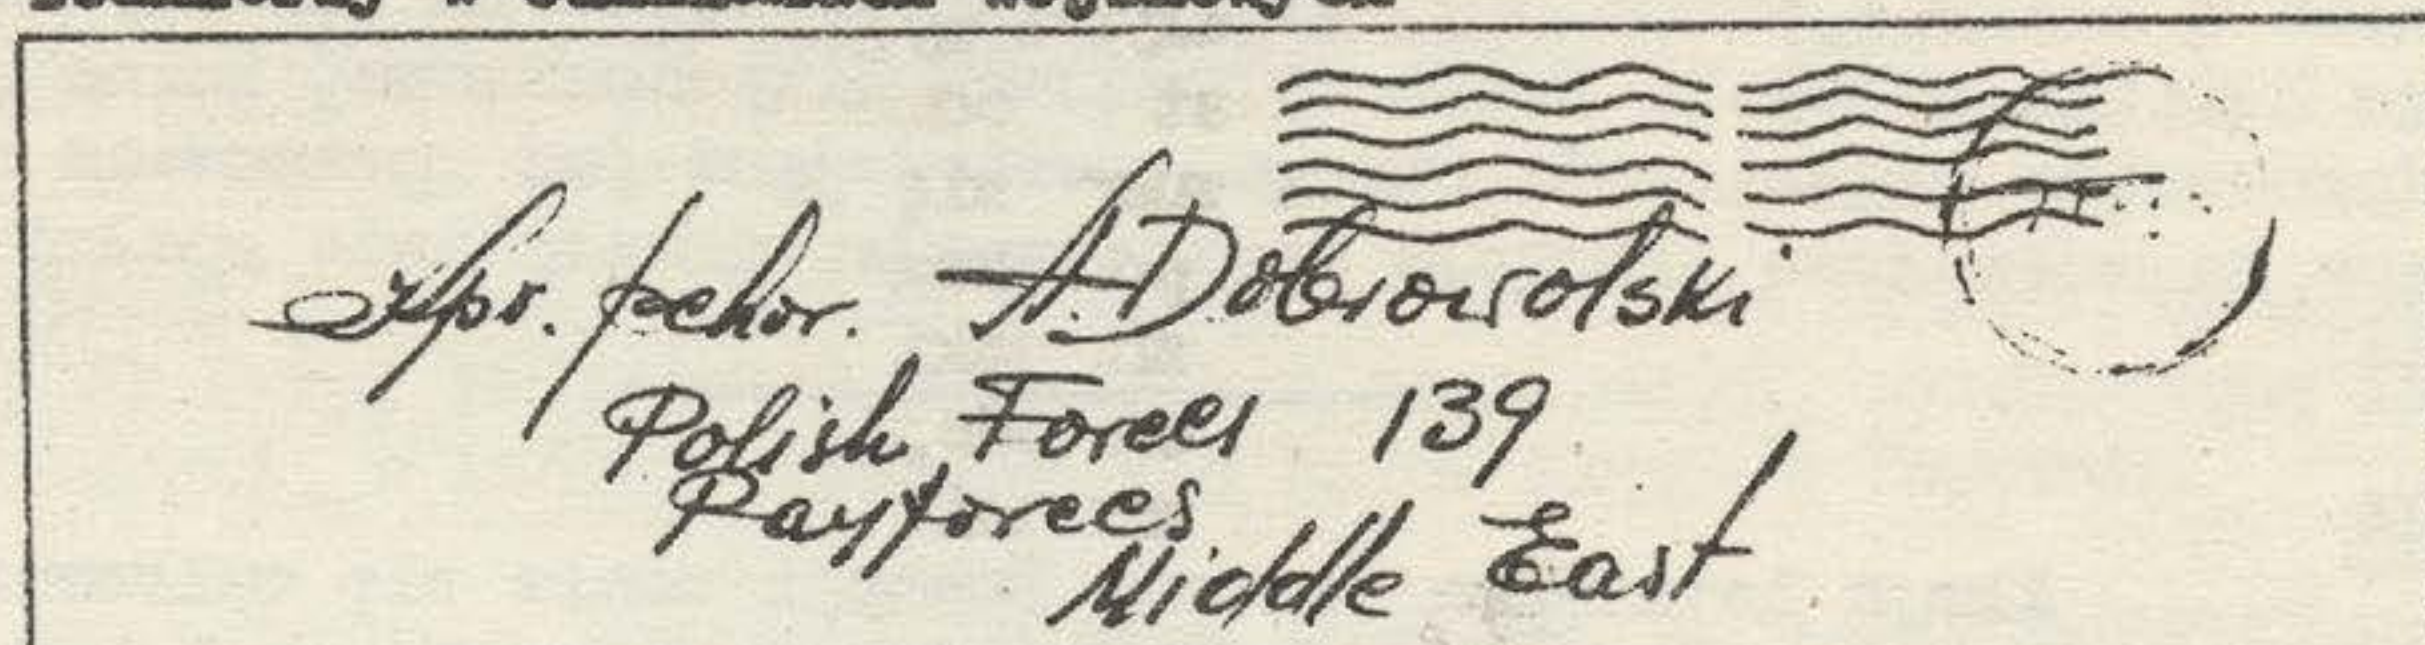 w
Kpr. pchor. A. Dobrowolski
Polish Forces 139
Payforces
Middle East